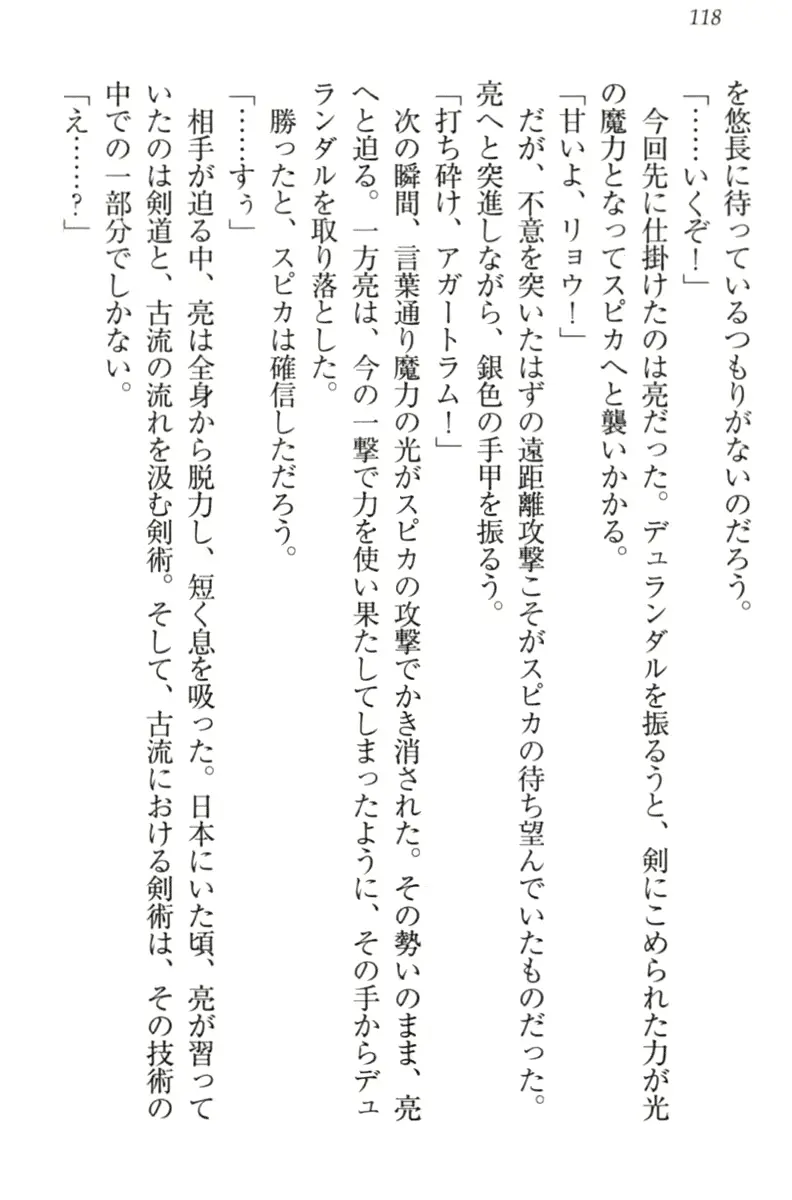 118
を悠長に待っているつもりがないのだろう。
「……いくぞ！」
今回先に仕掛けたのは亮だった。デュランダルを振るうと、剣にこめられた力が光
の魔力となってスピカへと襲いかかる。
「甘いよ、リョウ！」
だが、不意を突いたはずの遠距離攻撃こそがスピカの待ち望んでいたものだった。
亮へと突進しながら、銀色の手甲を振るう。
「打ち砕け、アガートラム！」
次の瞬間、言葉通り魔力の光がスピカの攻撃でかき消された。その勢いのまま、亮
へと迫る。一方亮は、今の一撃で力を使い果たしてしまったように、その手からデュ
ランダルを取り落とした。
勝ったと、スピカは確信しただろう。
「……すぅ」
相手が迫る中、亮は全身から脱力し、短く息を吸った。日本にいた頃、亮が習って
いたのは剣道と、古流の流れを汲む剣術。そして、古流における剣術は、その技術の
中での一部分でしかない。
「え……？」